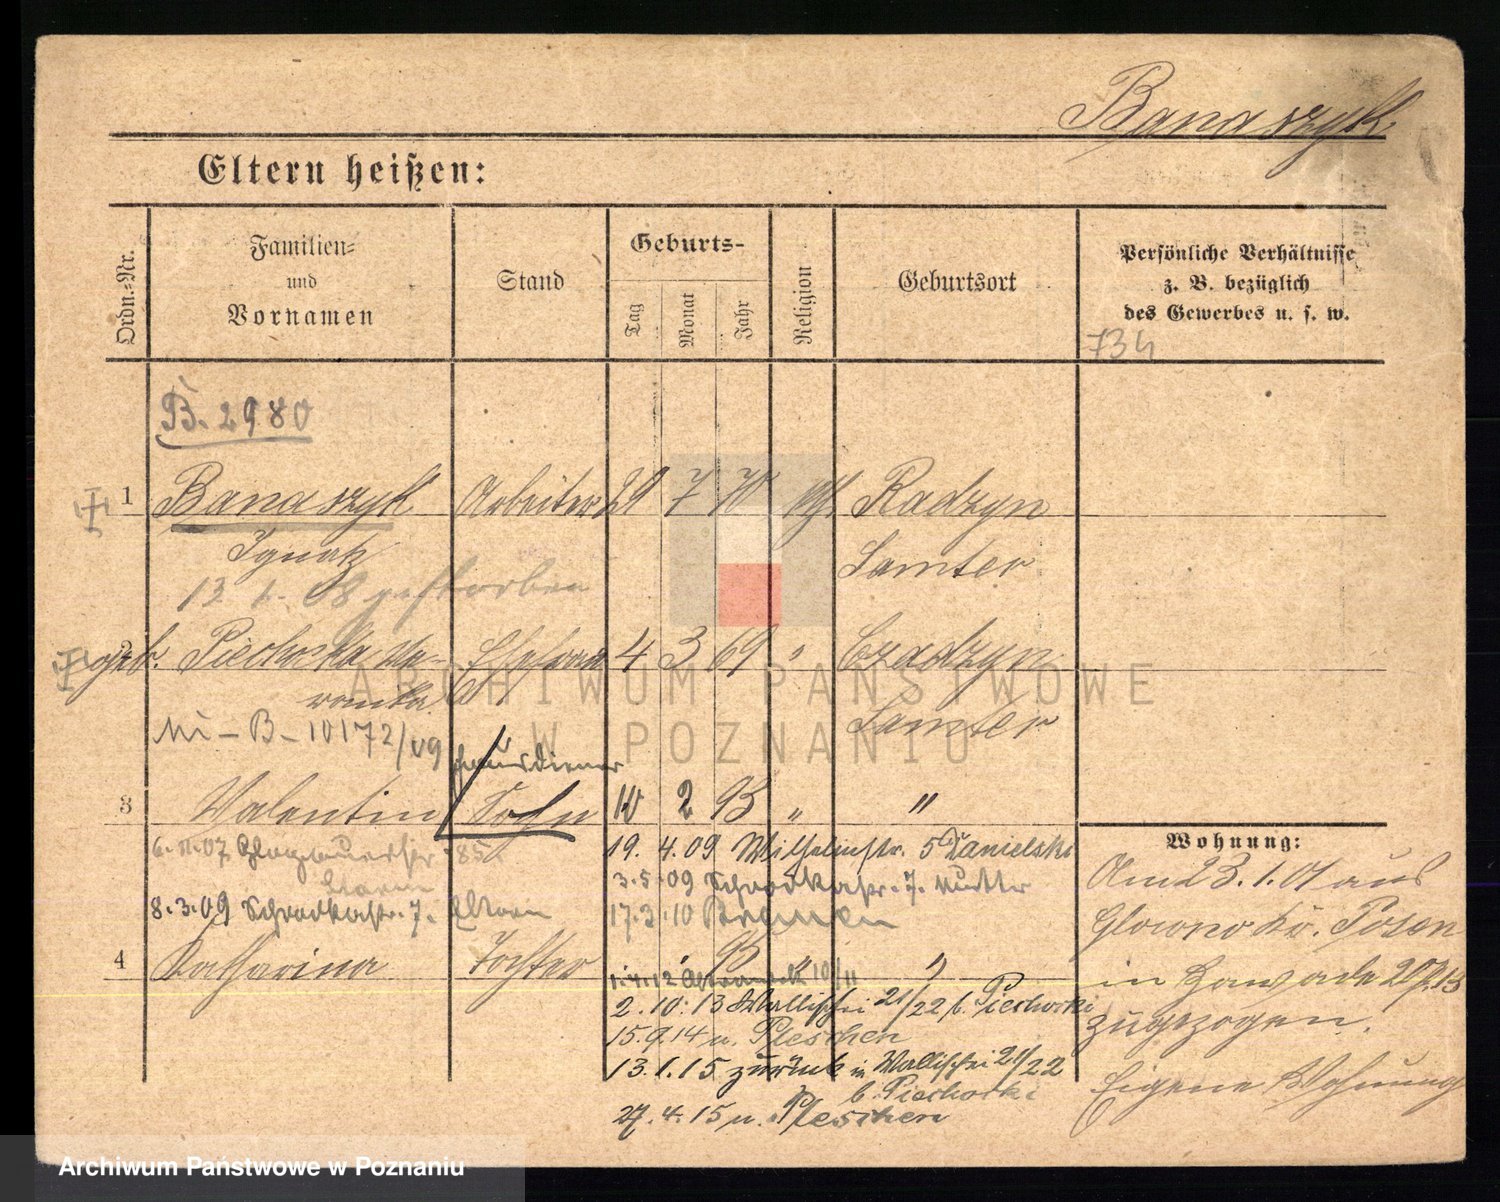 Banaszyk
Eltern heißen:
Ordn.-Nr.
Familien-
und
Vornamen
Stand
Geburts-
Tag
Monat
Jahr
Religion
Geburtsort
Persönliche Verhältnisse
z. B. bezüglich
des Gewerbes u. s. w.
734
B. 2980
1 Banaszyk Arbeiter 7 70 Radzyn
Ignatz Samter
13. 1. 08 gestorben
2 geb. Piechocka Ehefrau 4 3 69 "
Samter
ARCHIWUM PAŃSTWOWE
W POZNANIU
B - 10172/09
Hausdiener
3 Valentin Sohn 10 2 93 " "
Wohnung:
6. 11. 07
19. 4. 09 Wilhelmstr. 5 Danielski
3. 5. 09 Schrodkastr. 7. Mutter
8. 3. 09 Schrodkastr. 7. Eltern
17. 3. 10 Bremen
4 Katharina Tochter 95 " "
2. 10. 13 Wallischei 21/22 b. Piechocki
15. 9. 14 n. Pleschen
13. 1. 15 zurück in Wallischei 21/22
b. Piechocki
27. 4. 15 n. Pleschen
Am 23. 1. 01 aus
Glowno Kr. Posen
in Zawade
zugezogen.
Eigene Wohnung
Archiwum Państwowe w Poznaniu